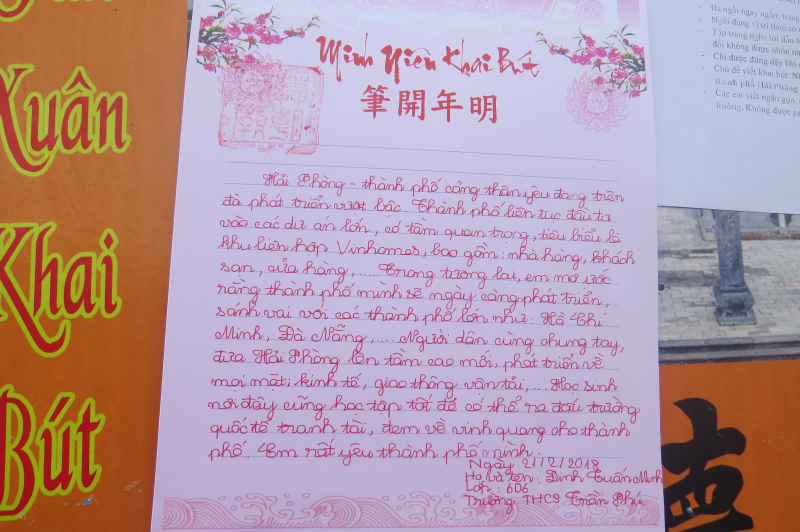 Xuân
Khai
Bút
Minh Niên Khai Bút
筆開年明
Hải Phòng - thành phố cảng thân yêu đang trên
đà phát triển vượt bậc. Thành phố liên tục đầu tư
vào các dự án lớn, có tầm quan trọng, tiêu biểu là
khu liên hợp Vinhomes, bao gồm: nhà hàng, khách
sạn, cửa hàng,.... Trong tương lai, em mơ ước
rằng thành phố mình sẽ ngày càng phát triển,
sánh vai với các thành phố lớn như: Hồ Chí
Minh, Đà Nẵng,... Người dân cùng chung tay,
đưa Hải Phòng lên tầm cao mới, phát triển về
mọi mặt: kinh tế, giao thông vận tải,... Học sinh
nơi đây cũng học tập tốt để có thể ra đấu trường
quốc tế tranh tài, đem về vinh quang cho thành
phố. Em rất yêu thành phố mình.
Ngày 21/2/2018
Họ và tên: Đinh Tuấn Minh
Lớp: 6D6
Trường THCS Trần Phú
- Hs ngồi ngay ngắn, trang
- Ngồi đúng vị trí theo sơ
- Tập trung nghe lời dẫn M
đôi không được nhôn nh
- Chỉ được đứng dậy khi
- Chủ đề viết khai bút: N
thành phố Hải Phòng
- Các em viết ngắn gọn,
trường. Không được gạ